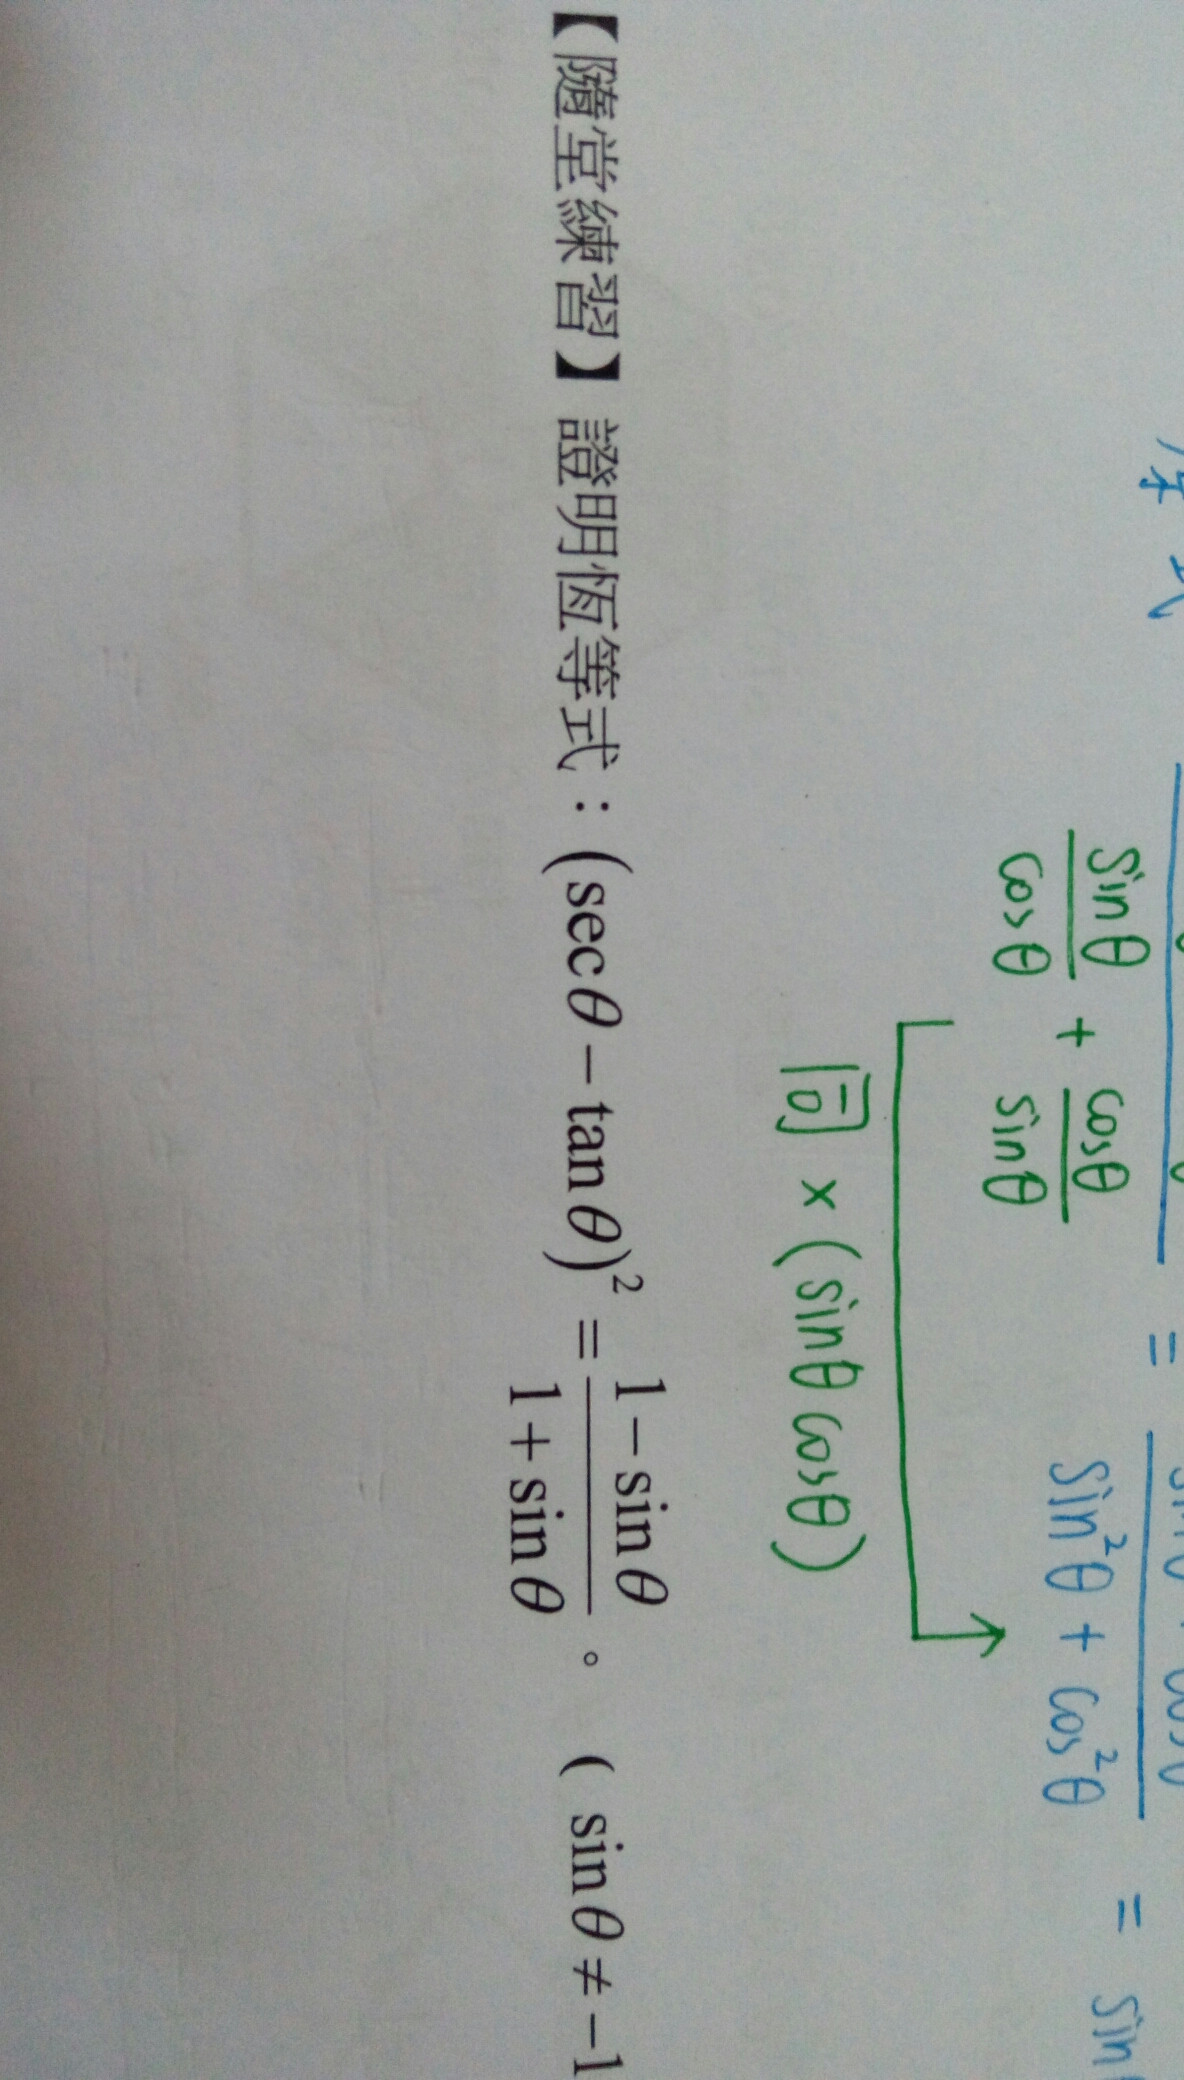 原式
sinθ/cosθ + cosθ/sinθ = sin²θ + cos²θ = sin
同 × (sinθ cosθ)
【隨堂練習】證明恆等式：(secθ − tanθ)² = (1 − sinθ)/(1 + sinθ)。 ( sinθ ≠ −1